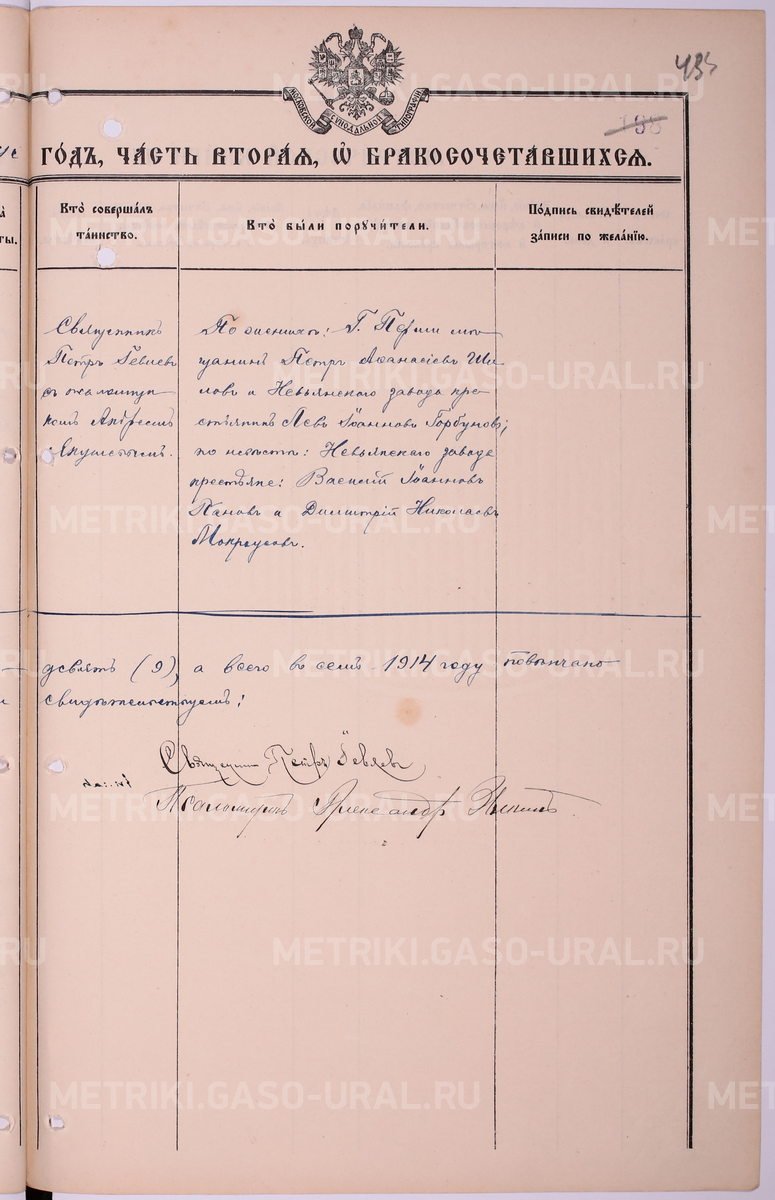 435
198
МОСКОВСКОЙ СѴНОДАЛЬНОЙ ТИПОГРАФІИ
ГО́ДЪ, ЧА́СТЬ ВТОРА́Я, Ѡ҆ БРАКОСОЧЕТА́ВШИХСЯ.
Кто̀ соверша́лъ
та́инство.
Кто̀ бы́ли порꙋчи́тели.
По́дпись свидѣ́телей
за́писи по жела́нїю.
ты.
Священникъ
Петръ Іевлевъ
съ псаломщи-
комъ Андреемъ
По женихѣ: Г. Перми мѣ-
щанинъ Петръ Аѳанасіевъ Ши-
ловъ и Невьянскаго завода кре-
стьянинъ Левъ Іоанновъ Горбуновъ;
по невѣстѣ: Невьянскаго завода
крестьяне: Василій Іоанновъ
Пановъ и Димитрій Николаевъ
Мокроусовъ.
девять (9), а всего въ семъ 1914 году повѣнчано
свидѣтельствуемъ:
Священникъ Петръ Іевлевъ
Псаломщикъ Александръ
METRIKI.GASO-URAL.RU